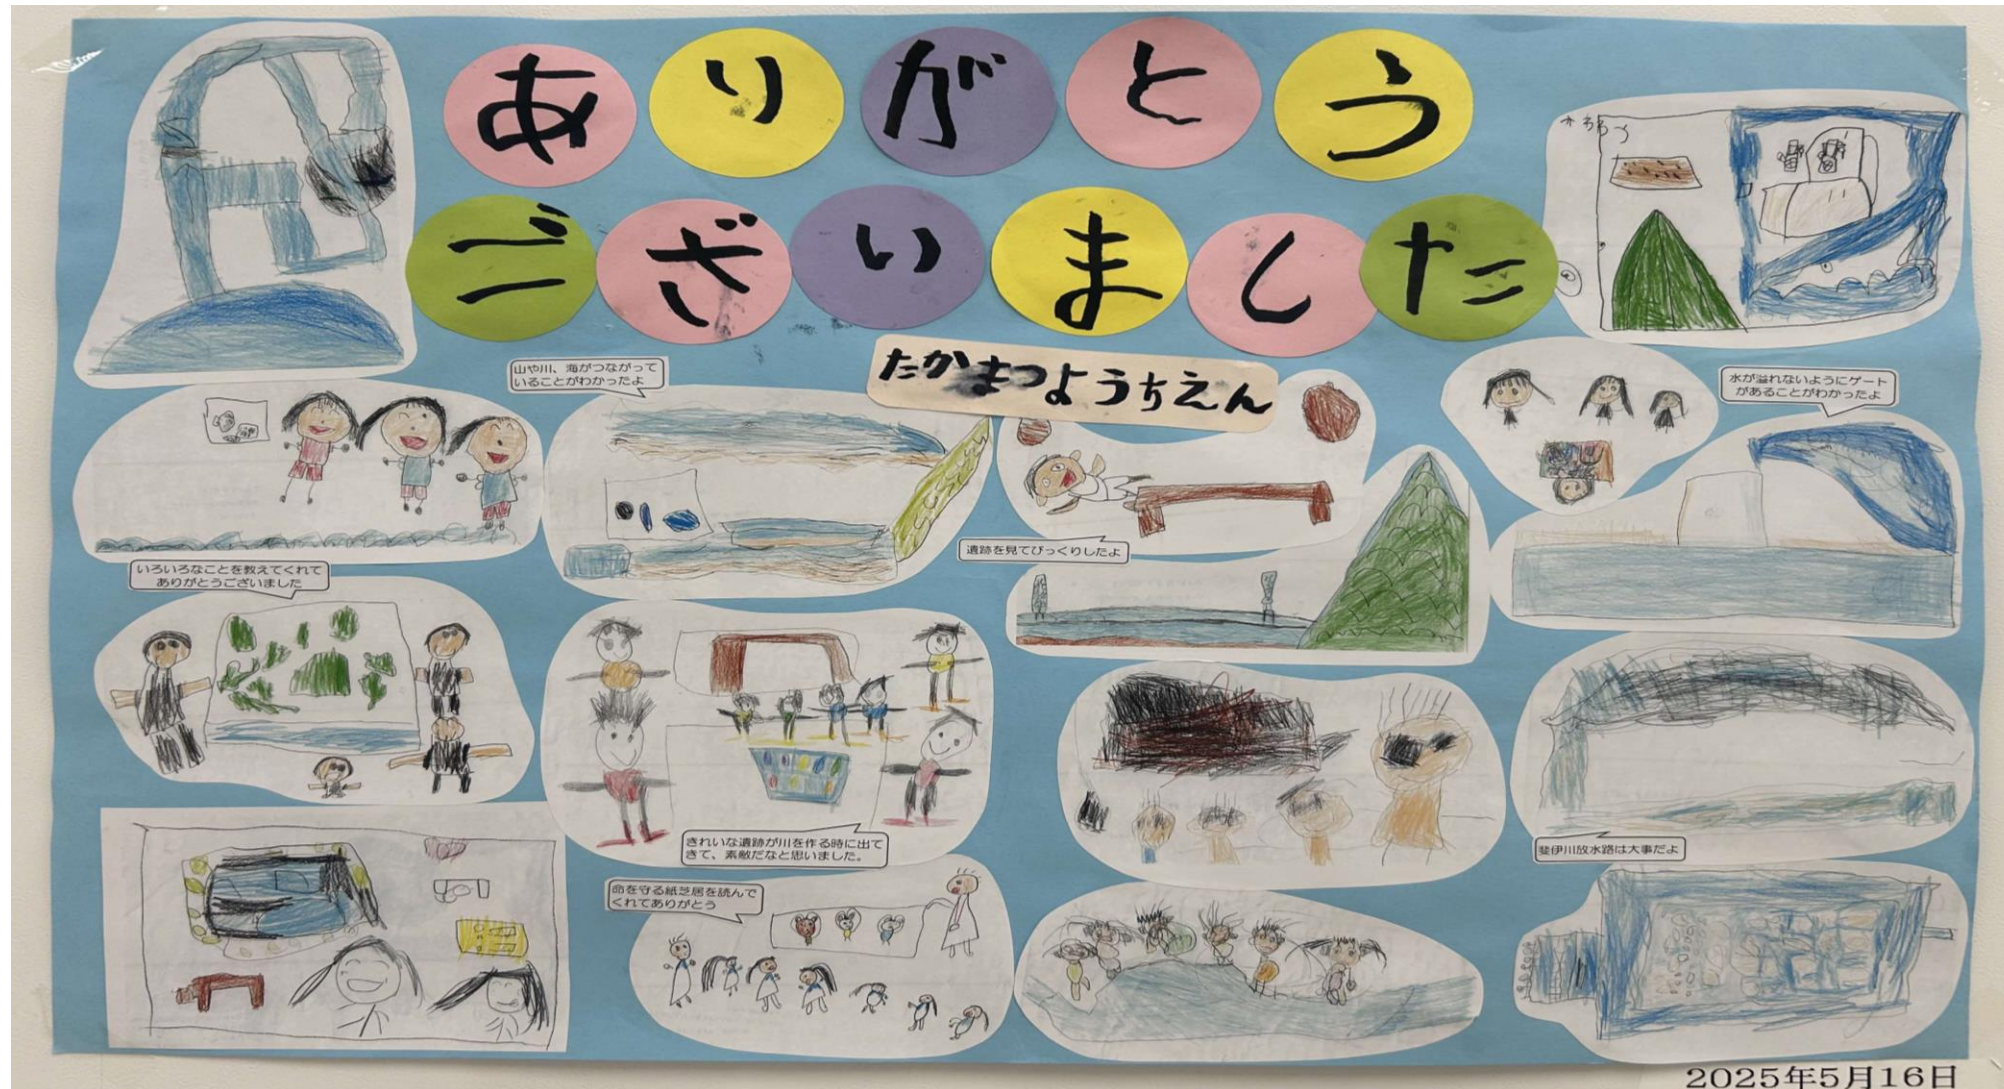 ありがとう
ございました
たかまつようちえん
山や川、海がつながって
いることがわかったよ
水が溢れないようにゲート
があることがわかったよ
遺跡を見てびっくりしたよ
いろいろなことを教えてくれて
ありがとうございました
きれいな遺跡が川を作る時に出て
きて、素敵だなと思いました。
斐伊川放水路は大事だよ
命を守る紙芝居を読んで
くれてありがとう
2025年5月16日